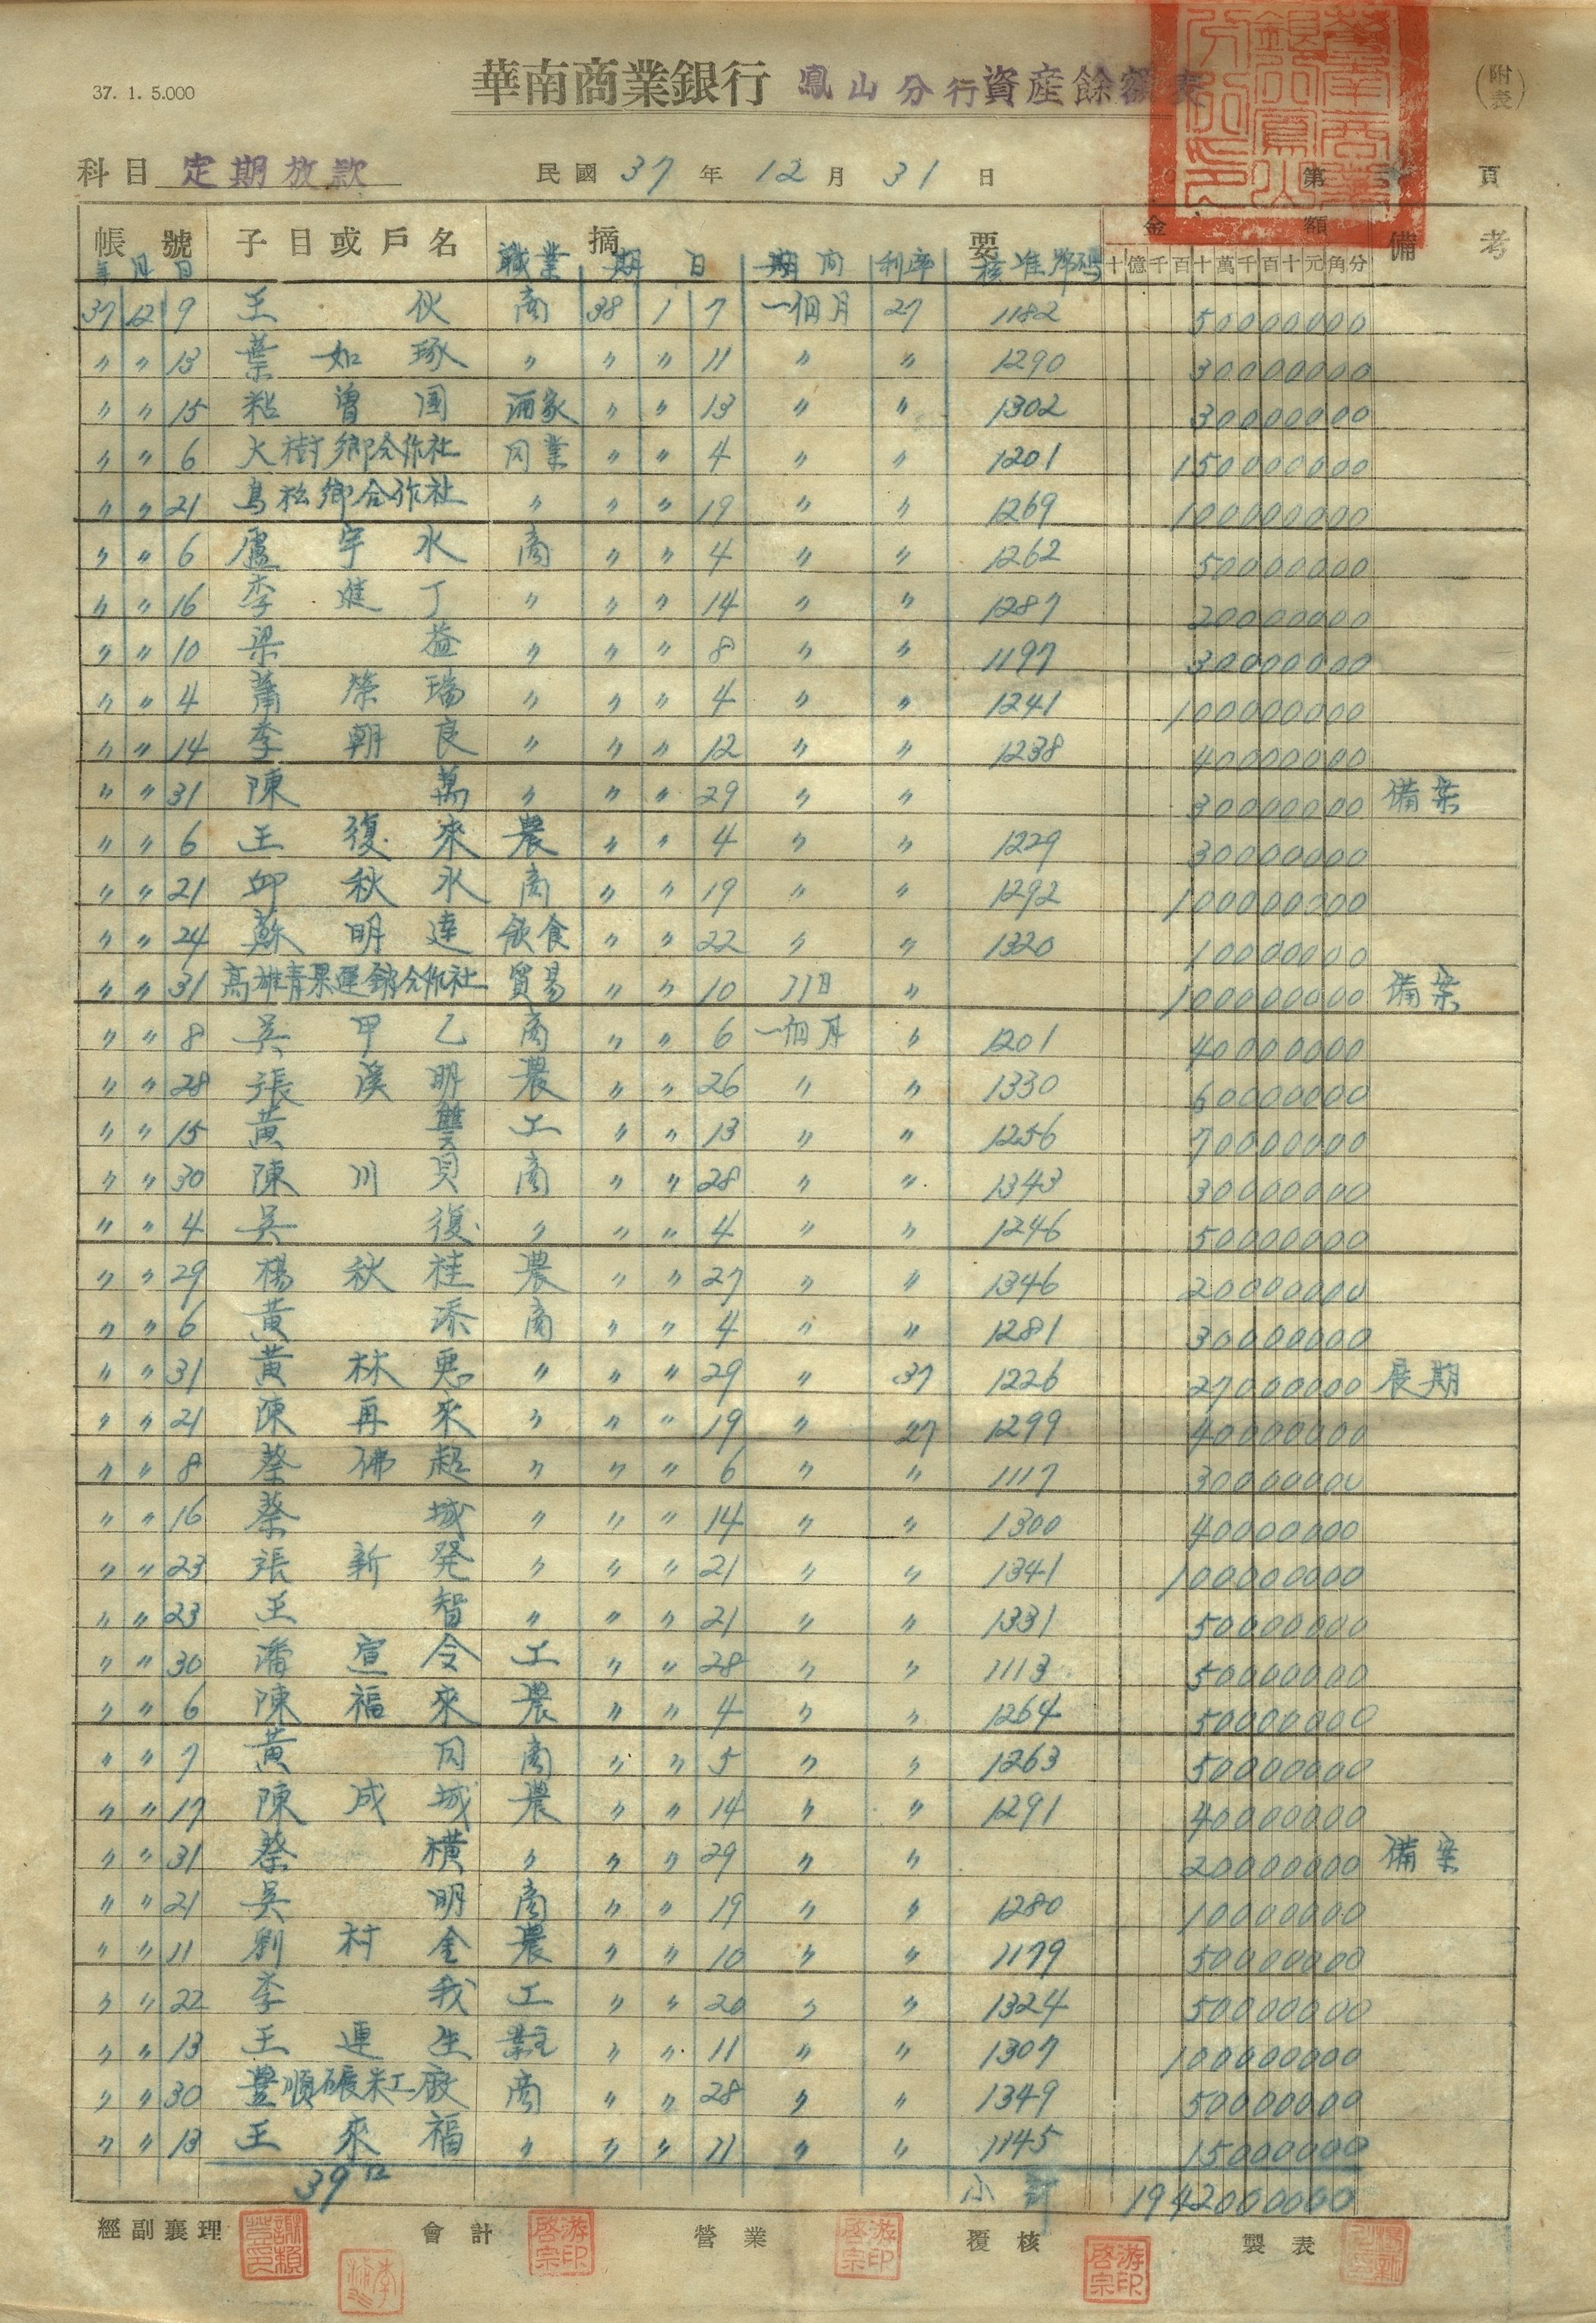 37. 1. 5.000
華南商業銀行 鳳山分行資産餘額表
(附表)
科目 定期放款 民國 37 年 12 月 31 日 第 頁
帳號 子目或戶名 摘要 金額 備考
年 月 日 職業 期日 期間 利率 核准號碼 十億千百十萬千百十元角分
37 12 9 王伙 商 38 1 7 一個月 27 1182 50000000
〃 〃 13 葉如琢 〃 〃 〃 11 〃 〃 1290 30000000
〃 〃 15 粘曾国 酒家 〃 〃 13 〃 〃 1302 30000000
〃 〃 6 大樹鄉合作社 同業 〃 〃 4 〃 〃 1201 150000000
〃 〃 21 鳥松鄉合作社 〃 〃 〃 19 〃 〃 1269 100000000
〃 〃 6 盧宇水 商 〃 〃 4 〃 〃 1262 50000000
〃 〃 16 李進丁 〃 〃 〃 14 〃 〃 1287 20000000
〃 〃 10 梁益 〃 〃 〃 8 〃 〃 1197 30000000
〃 〃 4 蕭榮瑞 〃 〃 〃 4 〃 〃 1241 100000000
〃 〃 14 李朝良 〃 〃 〃 12 〃 〃 1238 40000000
〃 〃 31 陳萬 〃 〃 〃 29 〃 〃 30000000 備案
〃 〃 6 王復來 農 〃 〃 4 〃 〃 1229 30000000
〃 〃 21 邱秋水 商 〃 〃 19 〃 〃 1292 100000000
〃 〃 24 蘇明達 飲食 〃 〃 22 〃 〃 1320 10000000
〃 〃 31 高雄青果運銷合作社 貿易 〃 〃 10 11日 〃 100000000 備案
〃 〃 8 吳甲乙 商 〃 〃 6 一個月 〃 1201 40000000
〃 〃 28 張溪明 農 〃 〃 26 〃 〃 1330 60000000
〃 〃 15 黃雙 工 〃 〃 13 〃 〃 1256 70000000
〃 〃 30 陳川貝 商 〃 〃 28 〃 〃 1343 30000000
〃 〃 4 吳復 〃 〃 〃 4 〃 〃 1246 50000000
〃 〃 29 楊秋桂 農 〃 〃 27 〃 〃 1346 20000000
〃 〃 6 黃添 商 〃 〃 4 〃 〃 1281 30000000
〃 〃 31 黃林惡 〃 〃 〃 29 〃 37 1226 27000000 展期
〃 〃 21 陳再來 〃 〃 〃 19 〃 27 1299 40000000
〃 〃 8 蔡佛超 〃 〃 〃 6 〃 〃 1117 30000000
〃 〃 16 蔡城 〃 〃 〃 14 〃 〃 1300 40000000
〃 〃 23 張新発 〃 〃 〃 21 〃 〃 1341 100000000
〃 〃 23 王智 〃 〃 〃 21 〃 〃 1331 50000000
〃 〃 30 潘宣令 工 〃 〃 28 〃 〃 1113 50000000
〃 〃 6 陳福來 農 〃 〃 4 〃 〃 1264 50000000
〃 〃 7 黃同 商 〃 〃 5 〃 〃 1263 50000000
〃 〃 17 陳成城 農 〃 〃 14 〃 〃 1291 40000000
〃 〃 31 蔡橫 〃 〃 〃 29 〃 〃 20000000 備案
〃 〃 21 吳明 商 〃 〃 19 〃 〃 1280 10000000
〃 〃 11 劉村金 農 〃 〃 10 〃 〃 1179 50000000
〃 〃 22 李我 工 〃 〃 20 〃 〃 1324 50000000
〃 〃 13 王連生 業主 〃 〃 11 〃 〃 1307 100000000
〃 〃 30 豊順碾米工廠 商 〃 〃 28 〃 〃 1349 50000000
〃 〃 13 王來福 〃 〃 〃 11 〃 〃 1145 15000000
39口 小計 1942000000
經副襄理 會計 營業 覆核 製表
游印啓宗 游印啓宗 游印啓宗